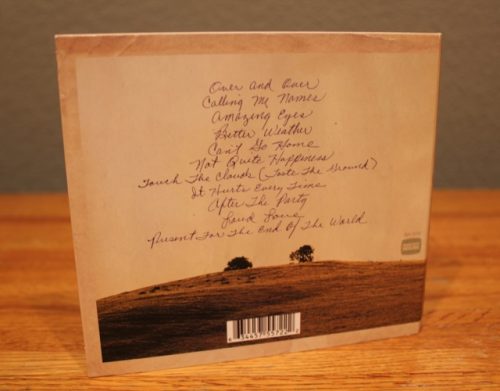 Over and Over
Calling Me Names
Amazing Eyes
Better Weather
Can't Go Home
Not Quite Happiness
Touch The Clouds (Taste The Ground)
It Hurts Every Time
After The Party
Loud Love
Present For The End Of The World